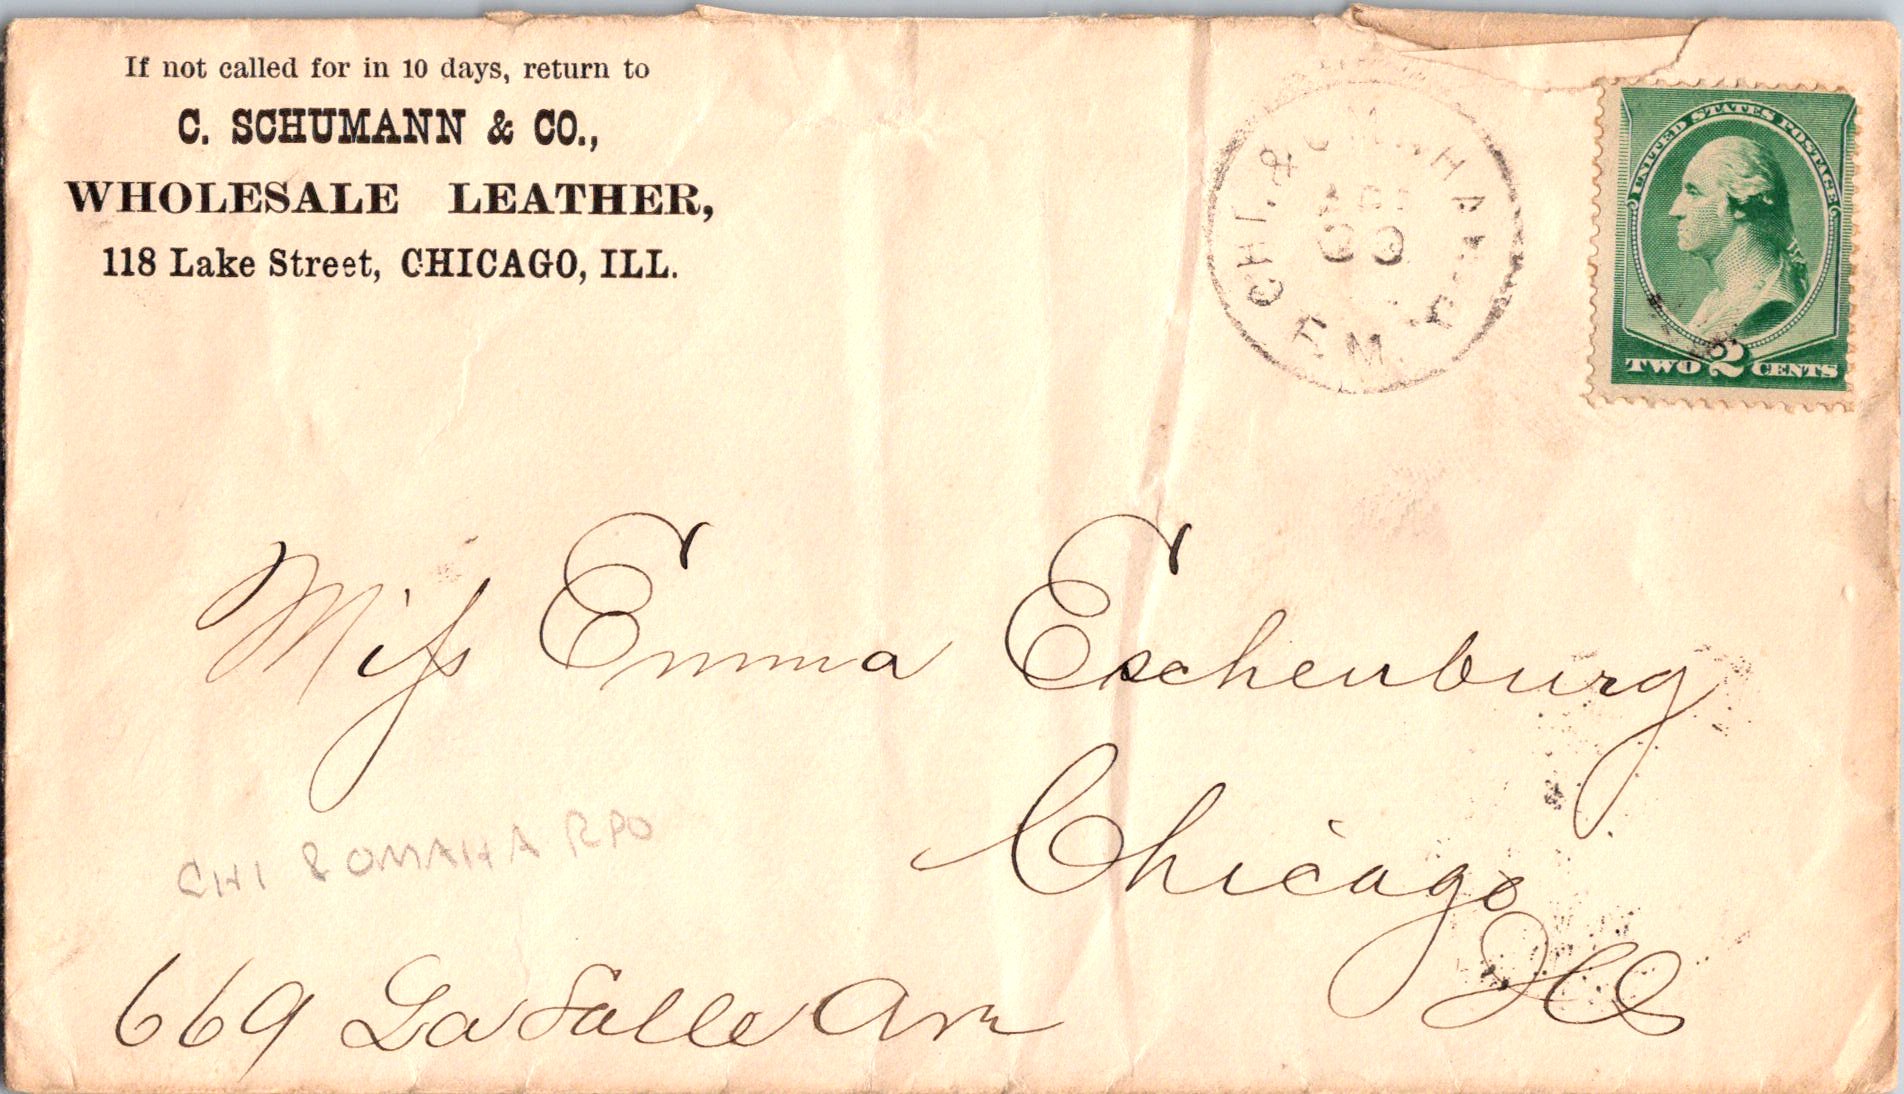 If not called for in 10 days, return to
C. SCHUMANN & CO.,
WHOLESALE LEATHER,
118 Lake Street, CHICAGO, ILL.
CHI. & OMAHA
R.M.
UNITED STATES POSTAGE
TWO 2 CENTS
Miss Emma Eschenburg
Chicago
Ills
CHI & OMAHA RPO
669 La Salle Ave